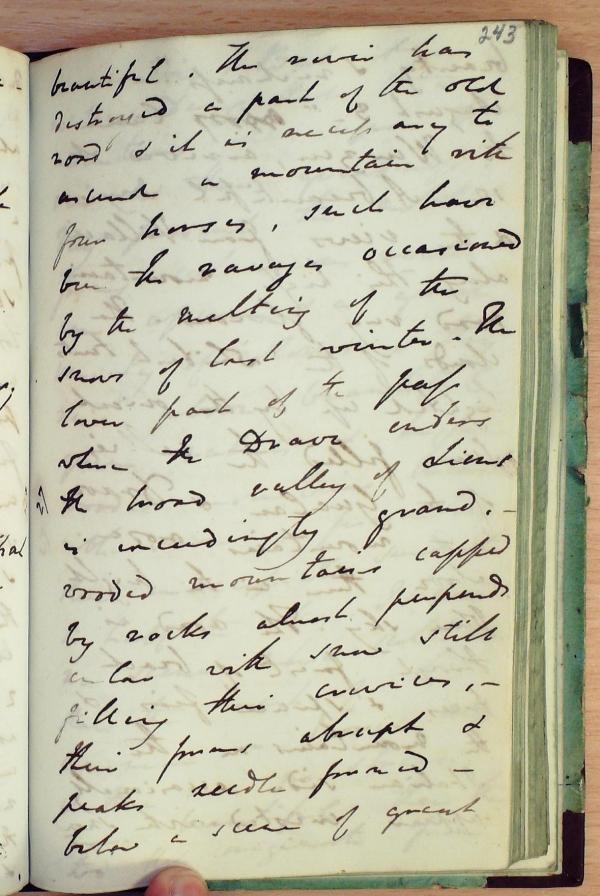 243
beautiful. The river has
destroyed a part of the old
road & it is necessary to
ascend a mountain with
four horses, such have
been the ravages occasioned
by the melting of the
snows of last winter. The
lower part of the pass
where the Drave enters
the broad valley of Lienz
is exceedingly grand. –
wooded mountains capped
by rocks almost perpendi
cular with snow still
filling their crevices, –
their forms abrupt &
peaks needle formed –
below a scene of great
27